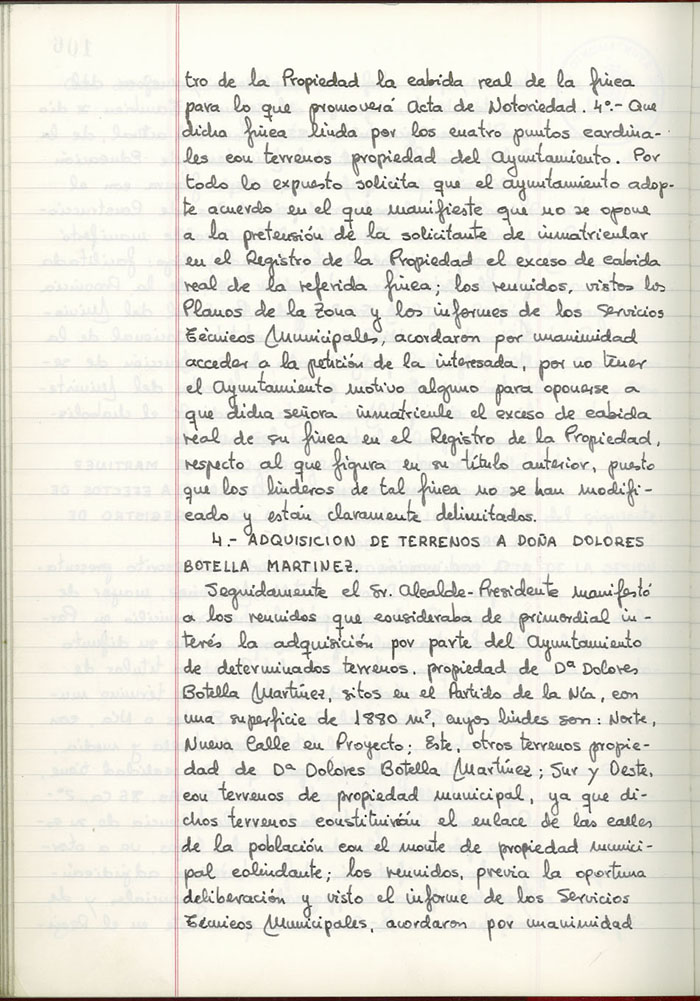 tro de la Propiedad la cabida real de la finca
para lo que promoverá Acta de Notoriedad. 4º.- Que
dicha finca linda por los cuatro puntos cardina-
les con terrenos propiedad del Ayuntamiento. Por
todo lo expuesto solicita que el ayuntamiento adop-
te acuerdo en el que manifieste que no se opone
a la pretensión de la solicitante de inmatricular
en el Registro de la Propiedad el exceso de cabida
real de la referida finca; los reunidos, vistos los
Planos de la Zona y los informes de los Servicios
Técnicos Municipales, acordaron por unanimidad
acceder a la petición de la interesada, por no tener
el Ayuntamiento motivo alguno para oponerse a
que dicha señora inmatricule el exceso de cabida
real de su finca en el Registro de la Propiedad,
respecto al que figura en su título anterior, puesto
que los linderos de tal finca no se han modifi-
cado y están claramente delimitados.
4.- ADQUISICION DE TERRENOS A DOÑA DOLORES
BOTELLA MARTINEZ.
Seguidamente el Sr. Alcalde-Presidente manifestó
a los reunidos que consideraba de primordial in-
terés la adquisición por parte del Ayuntamiento
de determinados terrenos, propiedad de Dª Dolores
Botella Martínez, sitos en el Partido de la Nía, con
una superficie de 1880 m², cuyos lindes son: Norte,
Nueva Calle en Proyecto; Este, otros terrenos propie-
dad de Dª Dolores Botella Martínez; Sur y Oeste,
con terrenos de propiedad municipal, ya que di-
chos terrenos constituirán el enlace de las calles
de la población con el monte de propiedad munici-
pal colindante; los reunidos, previa la oportuna
deliberación y visto el informe de los Servicios
Técnicos Municipales, acordaron por unanimidad